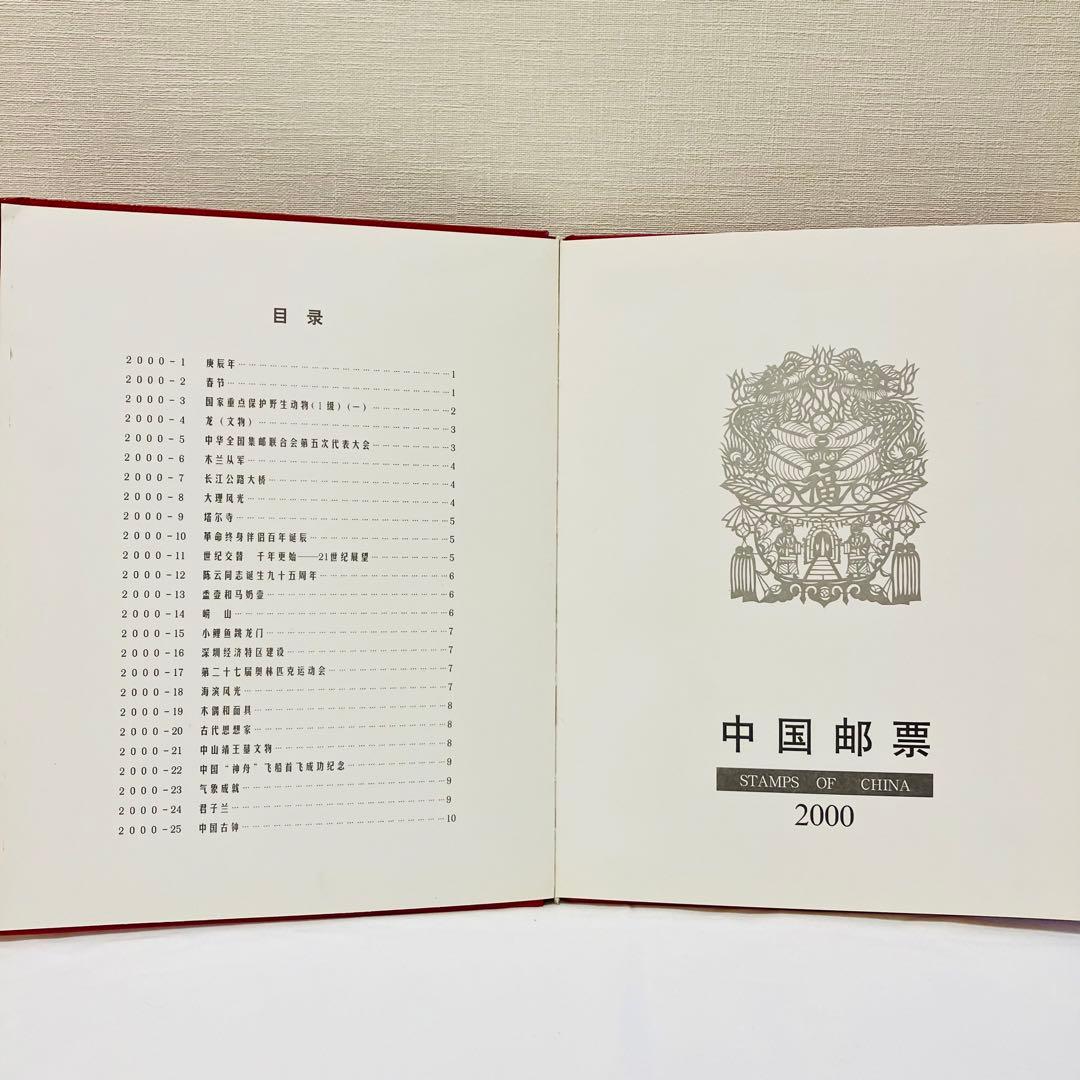 目录
2000-1 庚辰年………………………………………………1
2000-2 春节………………………………………………1
2000-3 国家重点保护野生动物(1级)(一)………………2
2000-4 龙(文物)………………………………………3
2000-5 中华全国集邮联合会第五次代表大会………………3
2000-6 木兰从军………………………………………4
2000-7 长江公路大桥………………………………………4
2000-8 大理风光………………………………………4
2000-9 塔尔寺………………………………………5
2000-10 革命终身伴侣百年诞辰………………………………5
2000-11 世纪交替 千年更始——21世纪展望………………5
2000-12 陈云同志诞生九十五周年………………………………6
2000-13 盉壶和马奶壶………………………………………6
2000-14 崂山………………………………………6
2000-15 小鲤鱼跳龙门………………………………………7
2000-16 深圳经济特区建设………………………………7
2000-17 第二十七届奥林匹克运动会………………………7
2000-18 海滨风光………………………………………7
2000-19 木偶和面具………………………………………8
2000-20 古代思想家………………………………………8
2000-21 中山靖王墓文物………………………………8
2000-22 中国“神舟”飞船首飞成功纪念………………………9
2000-23 气象成就………………………………………9
2000-24 君子兰………………………………………9
2000-25 中国古钟………………………………………10
福
中国邮票
STAMPS OF CHINA
2000